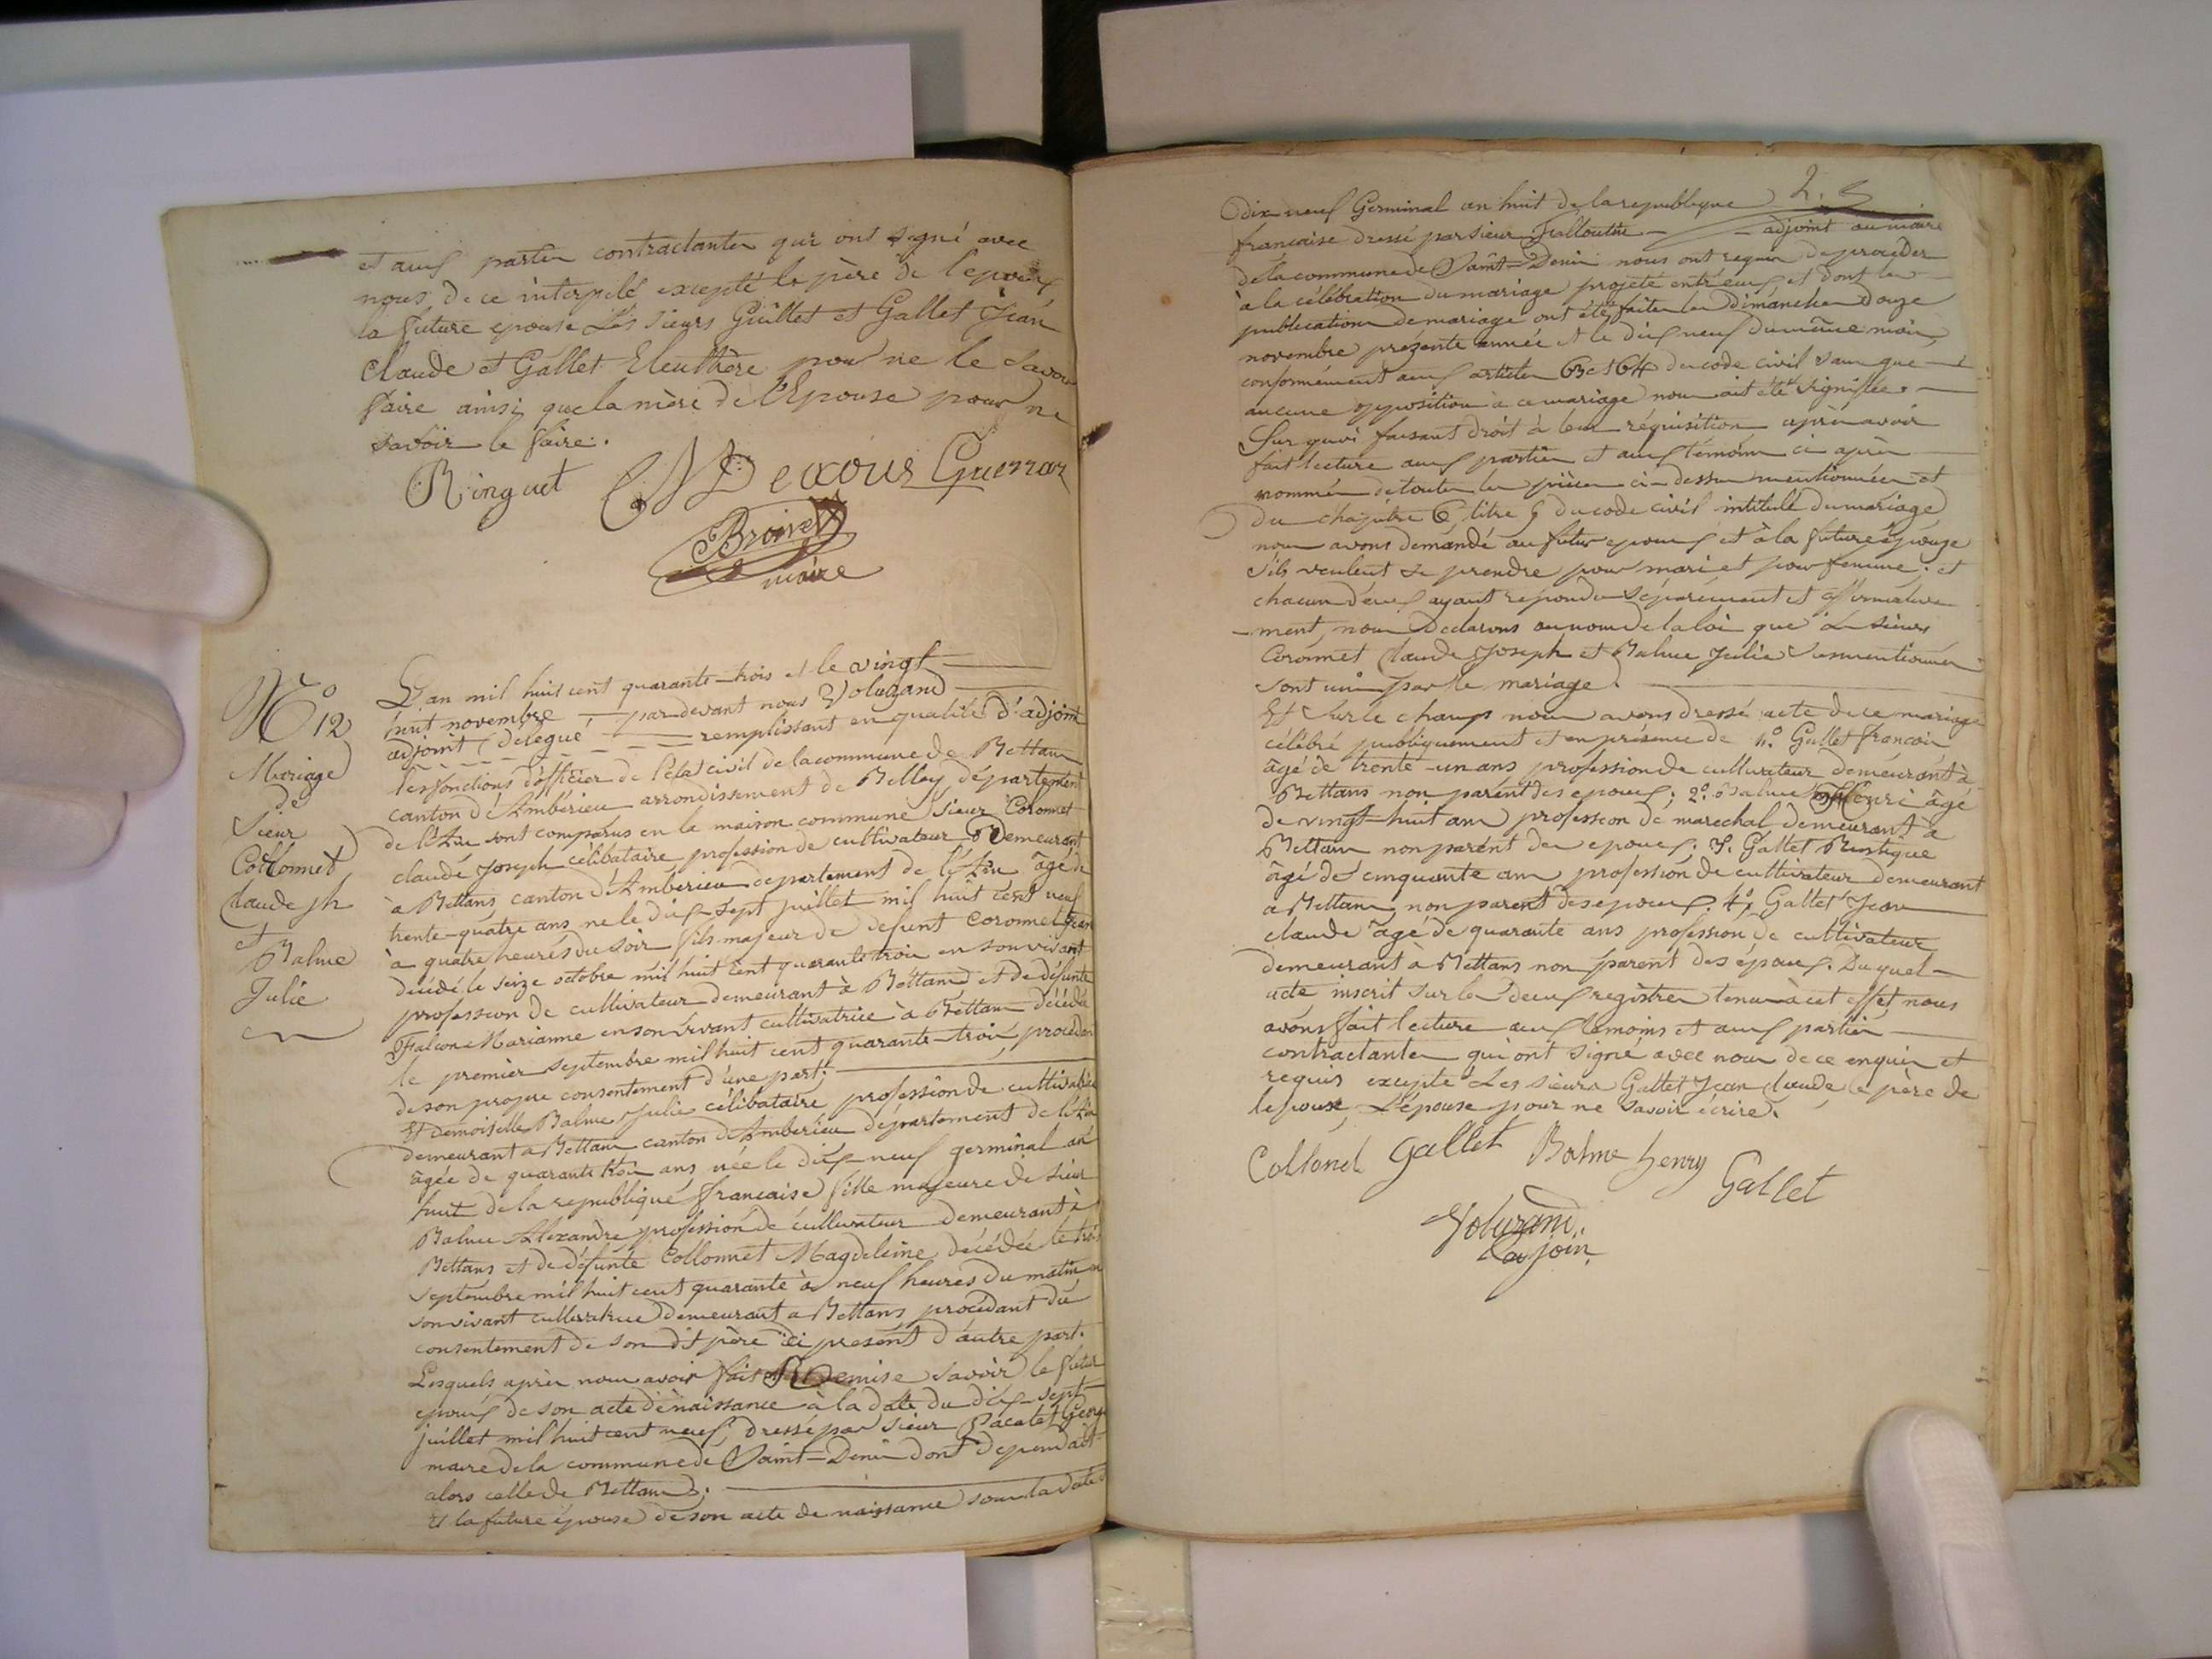 et aux parties contractantes qui ont signé avec
nous, de ce interpelé excepté le père de l'epoux
la future epouse Les sieurs Guillet et Gallet Jean
claude et Gallet Eleuthère pour ne le savoir
faire ainsi que la mère de l'Epouse pour ne
savoir le faire.
Ringuet Dexours Guerrar
Broiret
maire
N.o 12
Mariage
de
Sieur
Collonnet
Claude jh
et
Balme
Julie
L'an mil huit cent quarante-trois et le vingt
huit novembre par devant nous Voluzand
adjoint (délégué remplissant en qualité d'adjoint
les fonctions d'officier de l'état civil de la commune de Bettans
canton d'Ambérieu arrondissement de Belley département
de l'Ain sont comparus en la maison commune sieur Coronnet
claude Joseph célibataire profession de cultivateur Demeurant
à Bettans canton d'Ambérieu département de l'Ain âgé de
trente-quatre ans né le dix-sept juillet mil huit cent neuf
à quatre heures du soir fils majeur de défunt Coronnet Jean
décédé le seize octobre mil huit cent quarante trois en son vivant
profession de cultivateur demeurant à Bettans et de défunte
Falcon Marianne en son vivant cultivatrice à Bettans décédée
le premier septembre mil huit cent quarante-trois, procédant
de son propre consentement d'une part;
Et Demoiselle Balme Julie célibataire profession de cultivatrice
demeurant à Bettans canton d'Ambérieu département de l'Ain
âgée de quarante trois ans née le dix-neuf germinal an
huit de la republique française fille majeure de sieur
Balme Alexandre profession de cultivateur demeurant à
Bettans et de défunte Collonnet Magdeleine décédée le trois
septembre mil huit cent quarante à neuf heures du matin en
son vivant cultivatrice demeurant a Bettans, procédant du
consentement de son dit père ici présent d'autre part.
Lesquels après nous avoir fait Remise savoir le futur
epoux de son acte de naissance à la date du dix-sept
juillet mil huit cent neuf, dressé par sieur Pacalet George
maire de la commune de Saint-Denis dont dependait
alors celle de Bettans.
Et la future épouse de son acte de naissance sous la date d
2.
Dix neuf Germinal an huit de la republique
francaise dressé par sieur adjoint au maire
de la commune de Saint-Denis nous ont requis de proceder
à la célébration du mariage projeté entr'eux et dont les
publications de mariage ont été faites les Dimanches Douze
novembre prezente année et le dix neuf du même mois,
conformément aux articles 63 et 64 du code civil sans que
aucune opposition à ce mariage nous ait été signifiée.
Sur quoi faisant droit à leur réquisition après avoir
fait lecture aux parties et aux témoins ci après
nommés de toutes les pièces ci-dessus mentionnées et
du chapitre 6, titre 5 du code civil intitulé du mariage,
nous avons demandé au futur epoux et à la future épouze
s'ils veulent se prendre pour mari et pour femme; et
chacun d'eux ayant repondu séparément et affirmative
-ment, nous Declarons au nom de la loi que Les sieurs
Coronnet Claude Joseph et Balme Julie susmentionnés
sont unis par le mariage.
Et sur le champs nous avons dressé acte de ce mariage
célébré publiquement et en présence de 1.o Gallet françois
âgé de trente-un ans profession de cultivateur demeurant à
Bettans non parent des epoux; 2.o Balme Henri âgé
de vingt-huit ans profession de marechal demeurant à
Bettans non parent des epoux; 3. Gallet Rustique
âgé de cinquante ans profession de cultivateur demeurant
a Bettans non parent des epoux. 4.o Gallet Jean
claude âgé de quarante ans profession de cultivateur
demeurant à Bettans non parent des époux. Duquel
acte inscrit sur les deux registres tenus à cet effet nous
avons fait lecture aux témoins et aux parties
contractantes qui ont signé avec nous de ce enquis et
requis excepté Les sieurs Gallet Jean claude, le père de
lepouse, L'épouse pour ne savoir écrire.
Collonel gallet Balme henry Gallet
Voluzand.
adjoin.